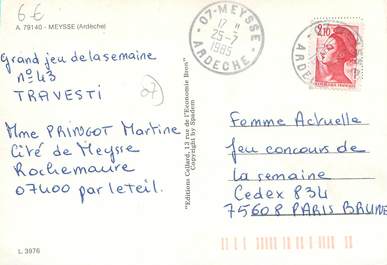 6€
A. 79140 - MEYSSE (Ardèche)
Grand jeu de la semaine
n° 43
TRAVESTI
Mme PRINGOT Martine
Cité de Meysse
Rochemaure
07400 par le teil.
L. 3976
"Editions Cellard, 13 rue de l'Economie Bron"
Copyright by Spadem
07-MEYSSE
17 H
25-7
1985
ARDECHE
2,10
Femme Actuelle
Jeu concours de
la semaine
Cedex 834
75608 PARIS BRUNE